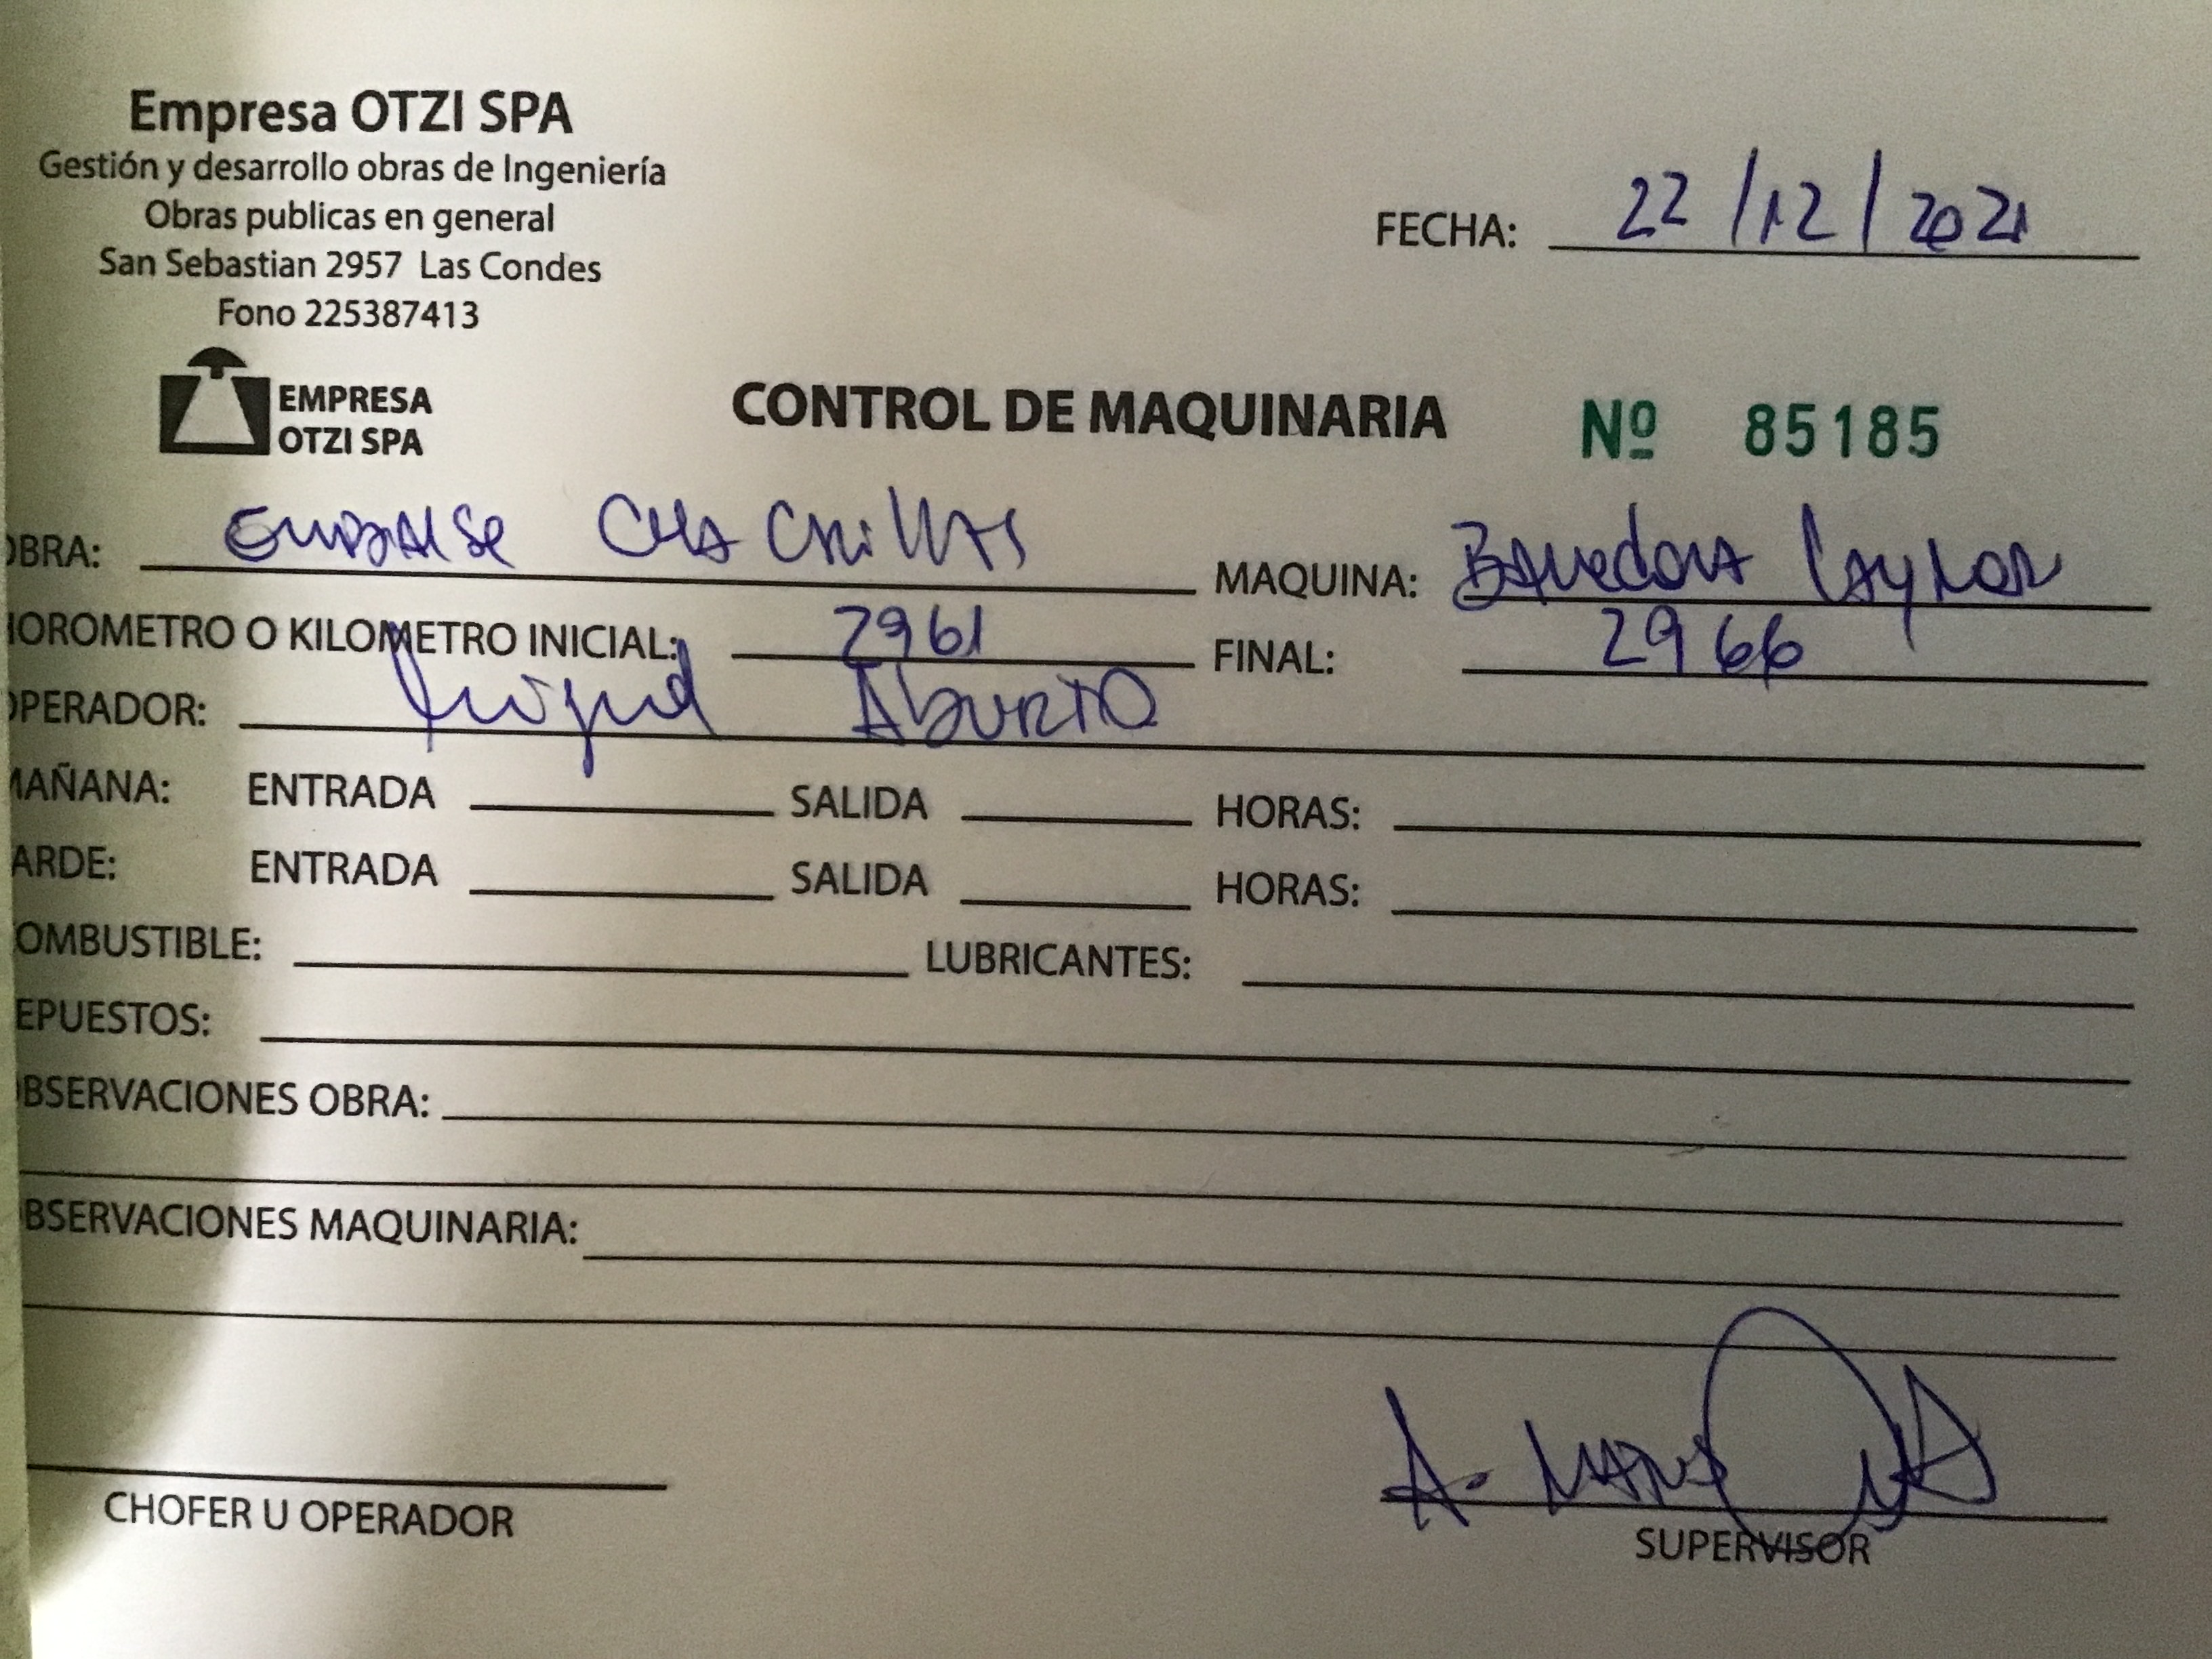 Empresa OTZI SPA
Gestión y desarrollo obras de Ingeniería
Obras publicas en general
San Sebastian 2957 Las Condes
Fono 225387413
FECHA: 22/12/2021
EMPRESA
OTZI SPA
CONTROL DE MAQUINARIA Nº 85185
OBRA: MAQUINA:
HOROMETRO O KILOMETRO INICIAL: 2961 FINAL: 2966
OPERADOR: Aburto
MAÑANA: ENTRADA SALIDA HORAS:
TARDE: ENTRADA SALIDA HORAS:
OMBUSTIBLE: LUBRICANTES:
EPUESTOS:
BSERVACIONES OBRA:
BSERVACIONES MAQUINARIA:
CHOFER U OPERADOR
SUPERVISOR